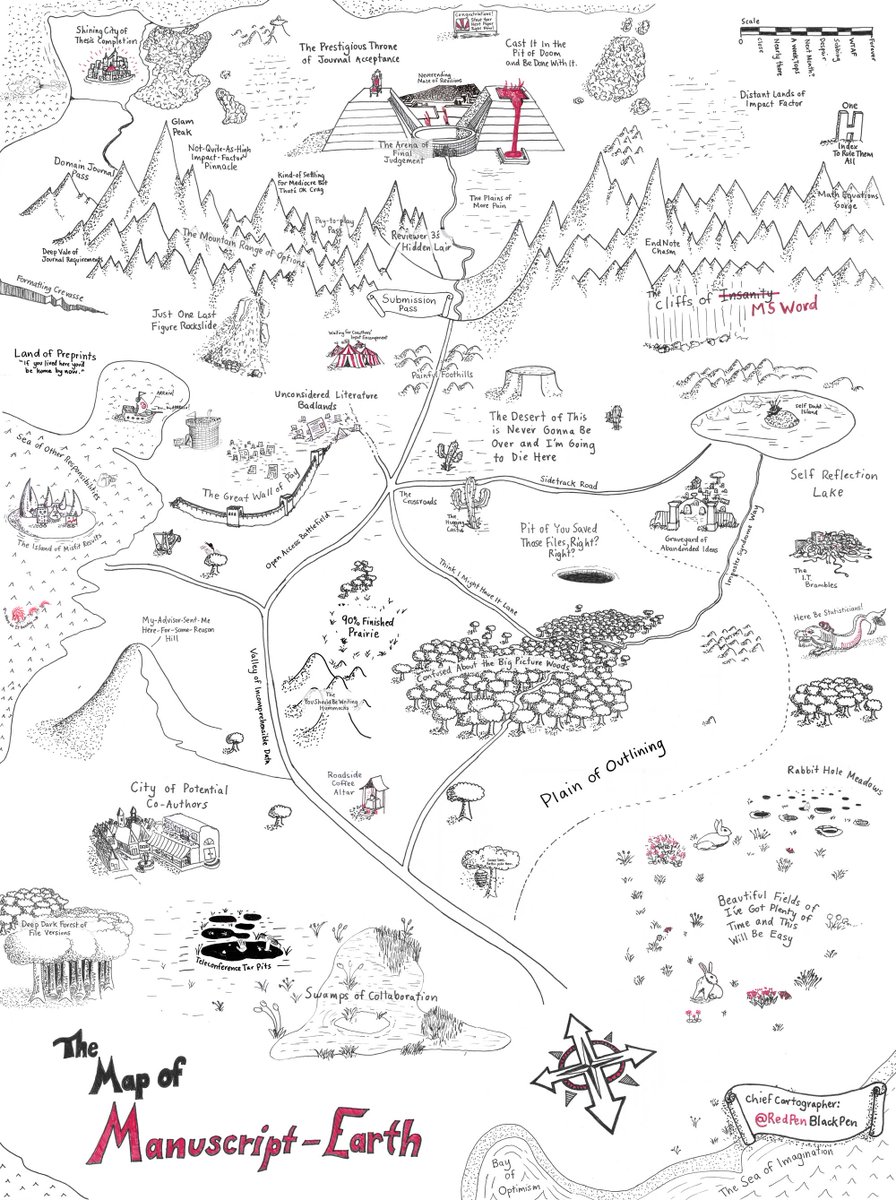 Congratulations!
Start Your
Next Paper
Right Now!
Scale
close
Nearly there
A week, tops
Next Month?
Despair
Sobbing
WTAF
Forever
Shining City of
Thesis Completion
The Prestigious Throne
of Journal Acceptance
Cast It In the
Pit of Doom
and Be Done With It.
Neverending
Maze of Revisions
Distant Lands of
Impact Factor
One
H
Index
To Rule Them
All
The Arena of
Final
Judgement
Glam
Peak
Not-Quite-As-High
Impact-Factor
Pinnacle
Domain Journal
Pass
Kind-of Settling
For Mediocre But
That's OK Crag
The Plains of
More Pain
Math Equations
Gorge
Pay-to-play
Pass
Reviewer 3's
Hidden Lair
The Mountain Range of Options
Deep Vale of
Journal Requirements
EndNote
Chasm
Formatting Crevasse
Submission
Pass
The
Cliffs of Insanity
MS Word
Just One Last
Figure Rockslide
Waiting for Coauthors'
Input Encampment
Land of Preprints
"If you lived here you'd
be home by now."
Painful Foothills
Unconsidered Literature
Badlands
The Desert of This
is Never Gonna Be
Over and I'm Going
to Die Here
Self Doubt
Island
Sea of Other Responsibilities
Self Reflection
Lake
Sidetrack Road
The Great Wall of Text
The
Crossroads
The
Hugging
Cactus
Graveyard of
Abandonded Ideas
Pit of You Saved
Those Files, Right?
Right?
Open Access Battlefield
The Island of Misfit Results
Imposter Syndrome Way
The
I.T.
Brambles
Think I Might Have It Lane
Here Be Statisticians!
My-Advisor-Sent-Me
Here-For-Some-Reason
Hill
90% Finished
Prairie
Confused About the Big Picture Woods
Valley of Incomprehensible Data
The
You Should Be Writing
Hummocks
Plain of Outlining
Rabbit Hole Meadows
Roadside
Coffee
Altar
City of Potential
Co-Authors
Beautiful Fields of
I've Got Plenty of
Time and This
Will Be Easy
Deep Dark Forest of
File Versions
Teleconference Tar Pits
Swamps of Collaboration
The
Map of
Manuscript-Earth
Chief Cartographer:
@RedPenBlackPen
Bay
of
Optimism
The Sea of Imagination